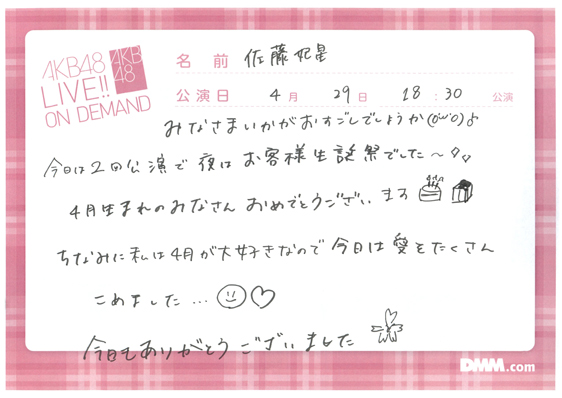 AKB48
LIVE!!
ON DEMAND
AKB
48
名前 佐藤妃星
公演日 4月 29日 18:30 公演
みなさまいかがおすごしでしょうか(o'ω'o)♪
今日は2回公演で夜はお客様生誕祭でした〜
4月生まれのみなさんおめでとうございます
ちなみに私は4月が大好きなので今日は愛をたくさん
こめました…
今日もありがとうございました
DMM.com